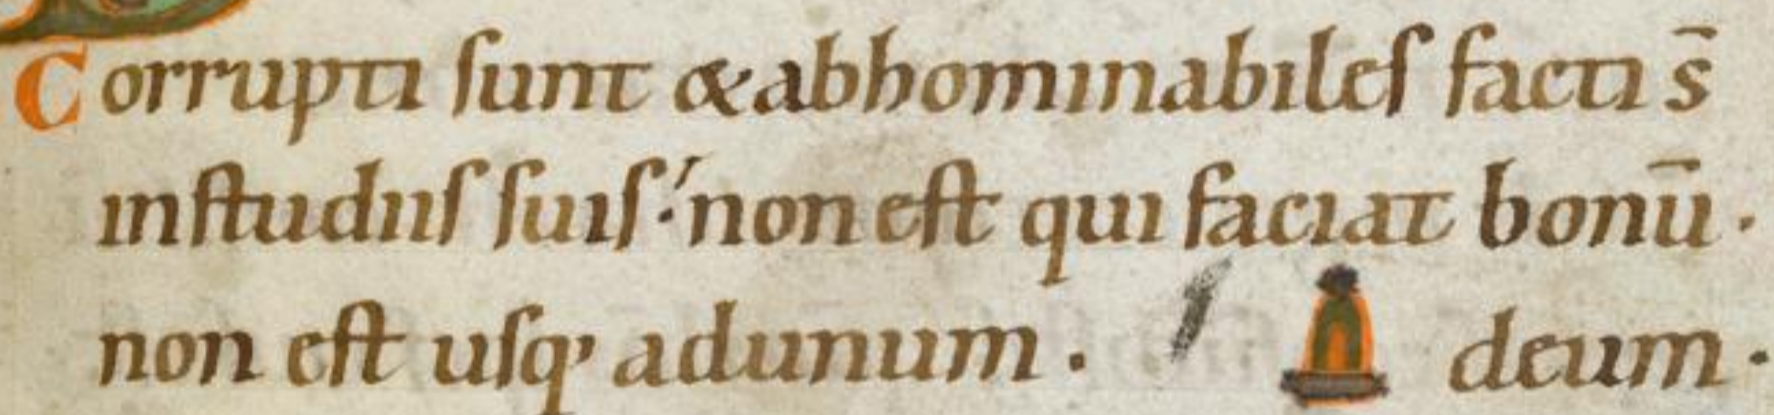 Corrupti ſunt & abhominabileſ facti s̄
inſtudiiſ ſuiſ·́ non eſt qui faciat bonū·
non eſt uſq; adunum · deum·